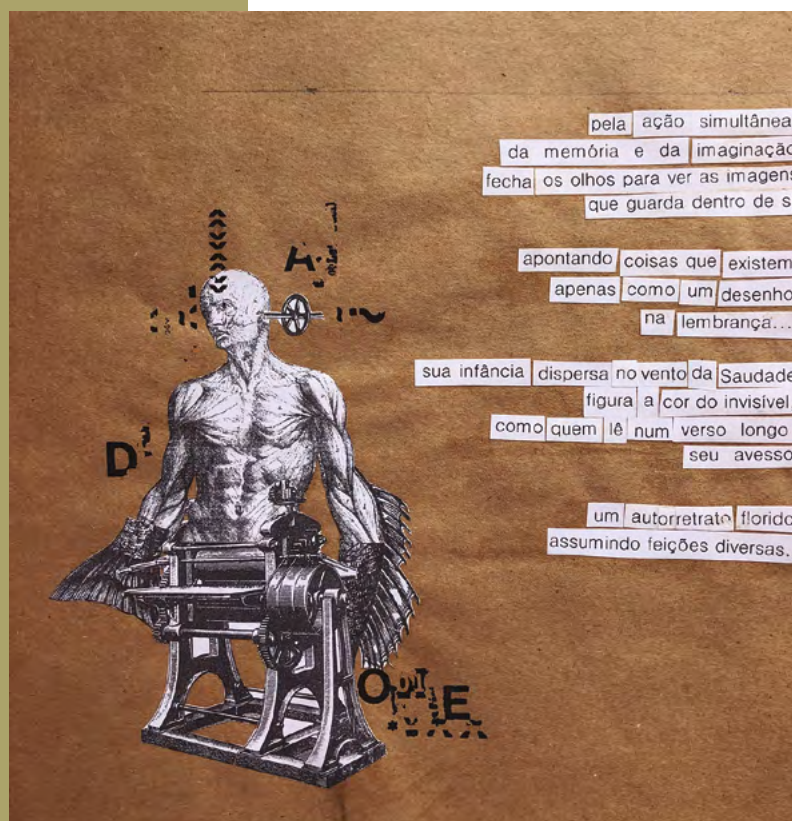 pela ação simultânea
da memória e da imaginação
fecha os olhos para ver as imagens
que guarda dentro de s
apontando coisas que existem
apenas como um desenho
na lembrança...
sua infância dispersa no vento da Saudade
figura a cor do invisível
como quem lê num verso longo
seu avesso
um autorretrato florido
assumindo feições diversas.
A
D
O
E